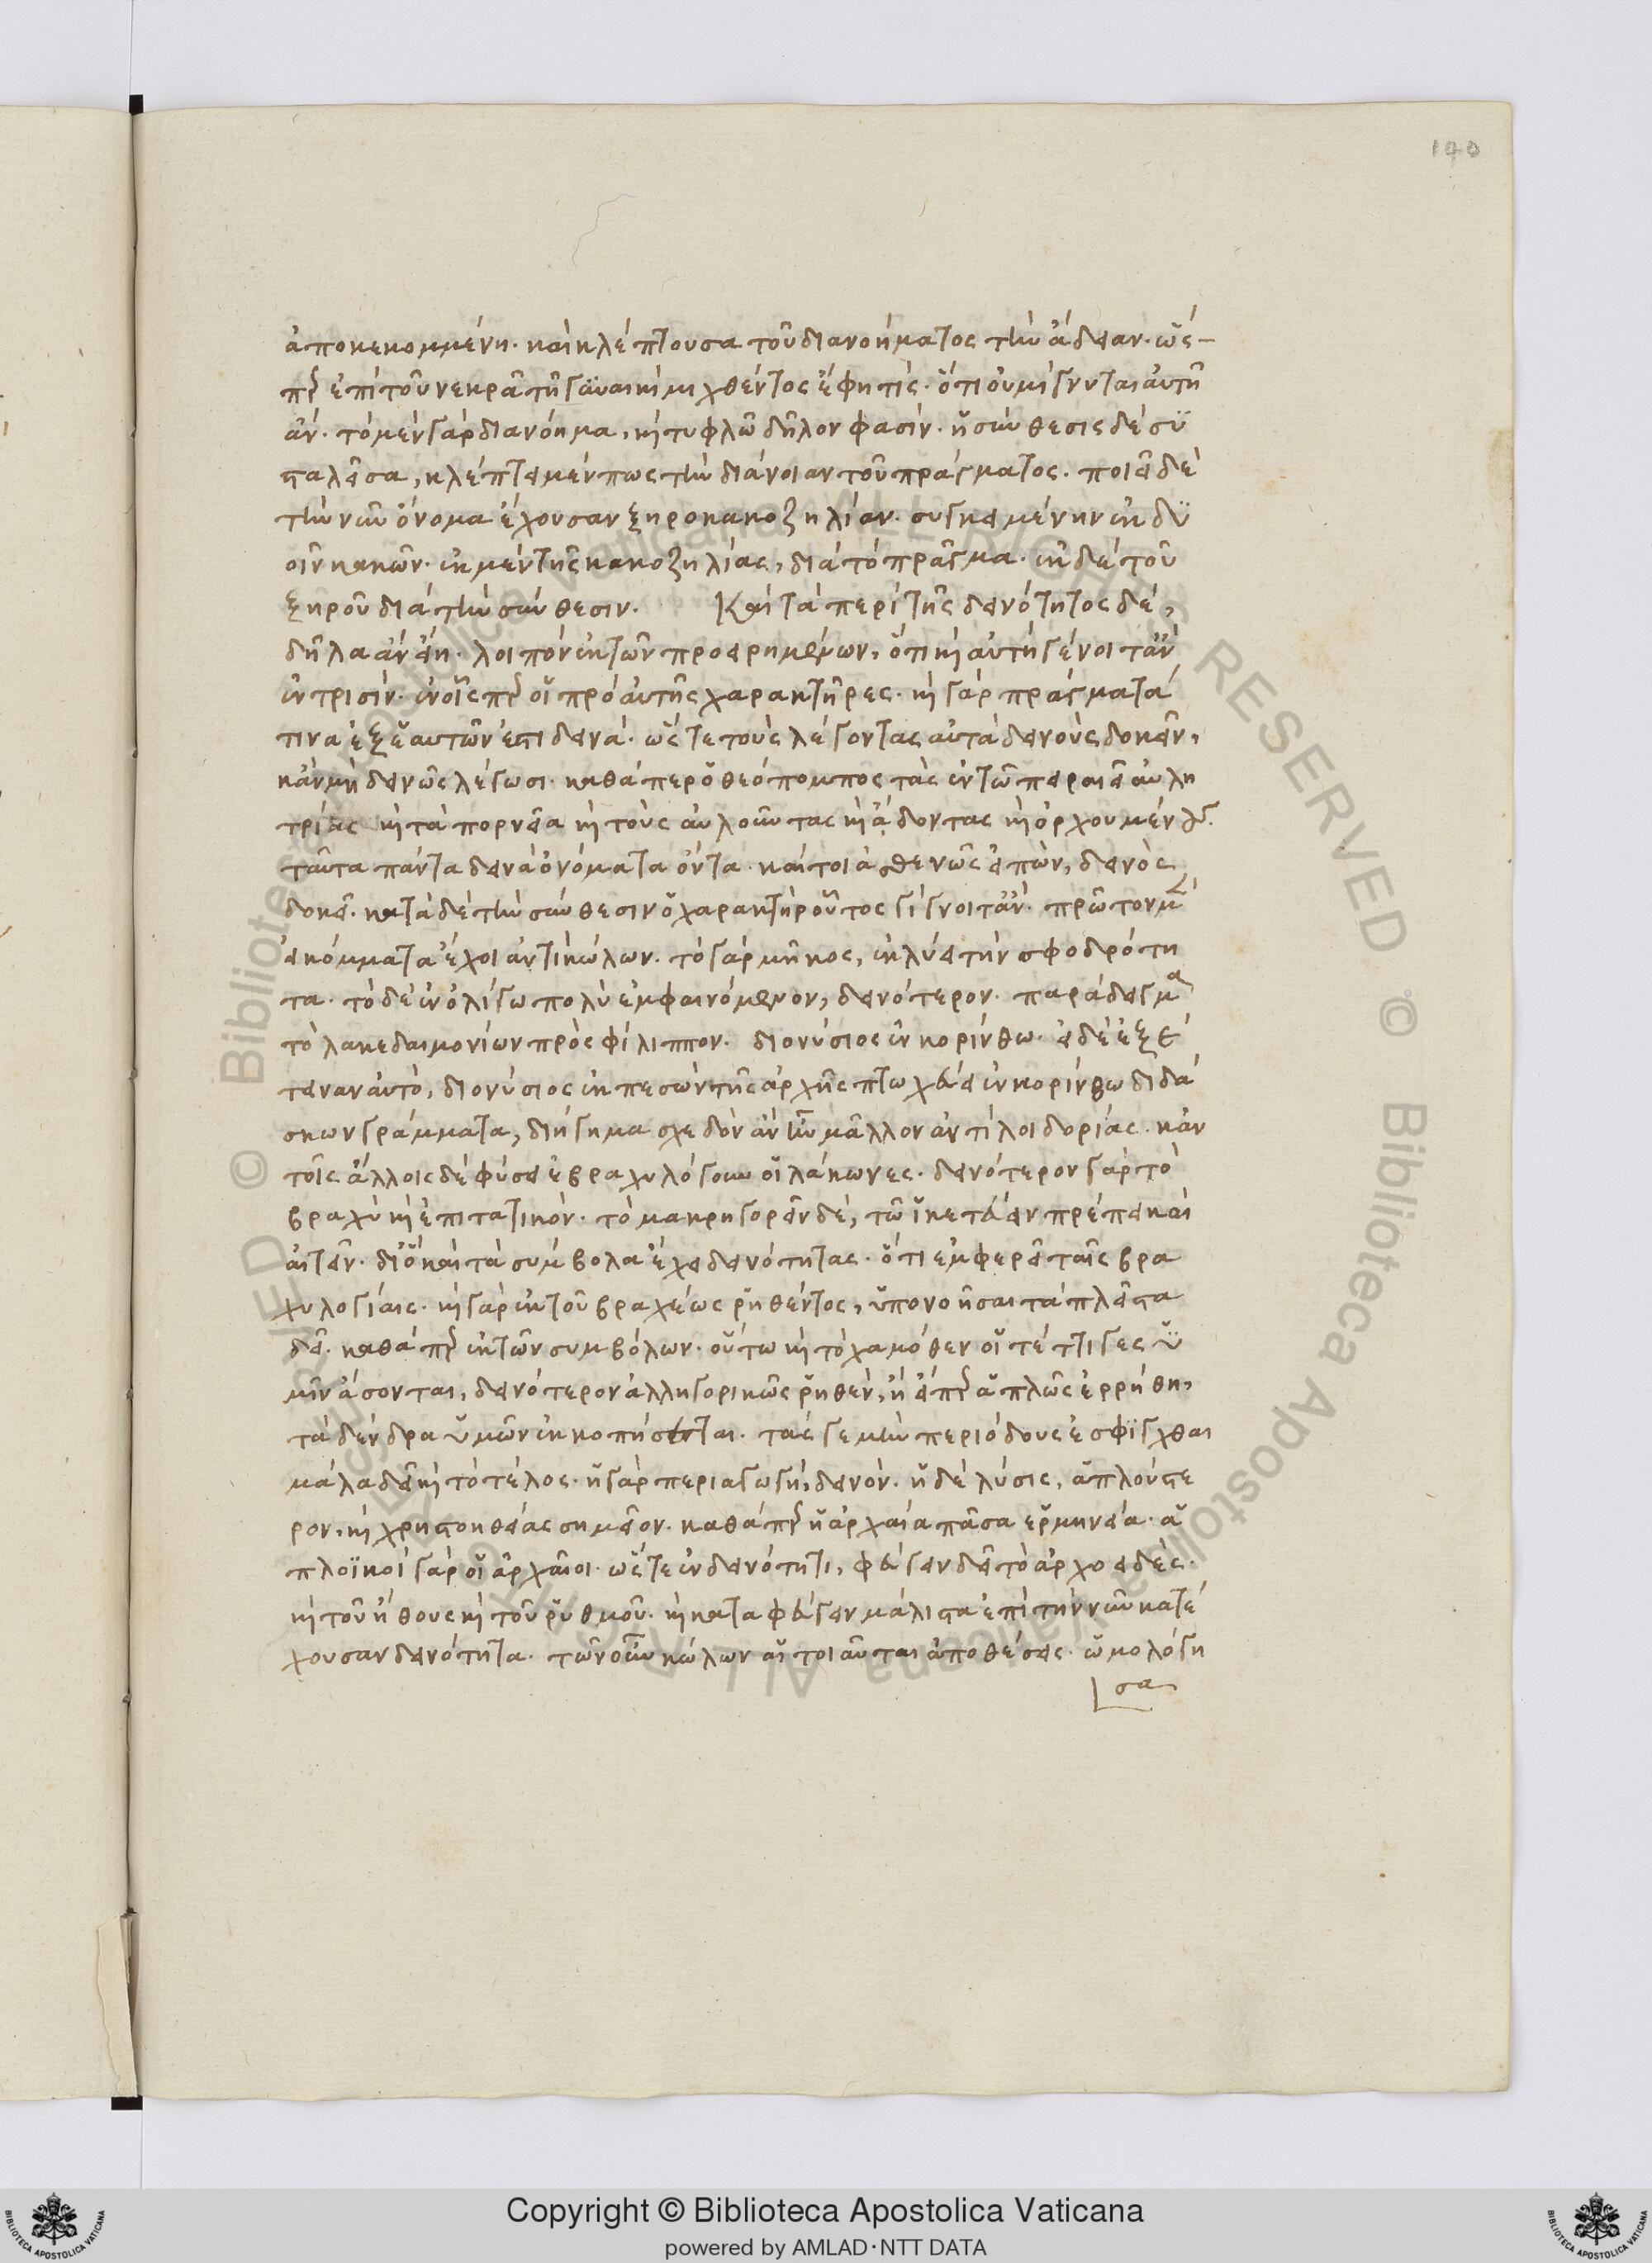 ἀποκεκομμένη· καὶ κλέπτουσα τοῦ διανοήματος τὴν ἄδειαν· ὥς-
περ ἐπὶ τοῦ νεκρᾷ τῇ γυναικὶ μιχθέντος ἔφη τίς· ὅτι οὐ μίγνυται αὐτῇ
ἄν· τὸ μὲν γὰρ διανόημα, καὶ τυφλῷ δῆλον φασίν· ἡ σύνθεσις δὲ συ
σταλεῖσα, κλέπτει μέν πως τὴν διάνοιαν τοῦ πράγματος· ποιεῖ δὲ
τὴν νῦν ὄνομα ἔχουσαν ξηροκακοζηλίαν· συγκειμένην ἐκ δυ
οῖν κακῶν· ἐκ μὲν τῆς κακοζηλίας, διὰ τὸ πρᾶγμα· ἐκ δὲ τοῦ
ξηροῦ διὰ τὴν σύνθεσιν. Καὶ τὰ περὶ τῆς δεινότητος δέ,
δῆλα ἂν εἴη· λοιπὸν ἐκ τῶν προειρημένων, ὅτι καὶ αὐτὴ γένοιτ' ἂν
ἐν τρισίν· ἐν οἷς περ οἱ πρὸ αὐτῆς χαρακτῆρες· καὶ γὰρ πράγματά
τινα ἐξ ἑαυτῶν ἐστι δεινά· ὥστε τοὺς λέγοντας αὐτὰ δεινοὺς δοκεῖν,
κἂν μὴ δεινῶς λέγωσι· καθάπερ ὁ θεόπομπος τὰς ἐν τῷ πειραιεῖ αὐλη
τρίας καὶ τὰ πορνεῖα καὶ τοὺς αὐλοῦντας καὶ ᾄδοντας καὶ ὀρχουμένους·
ταῦτα πάντα δεινὰ ὀνόματα ὄντα· καίτοι ἀσθενῶς εἰπών, δεινὸς
δοκεῖ· κατὰ δὲ τὴν σύνθεσιν ὁ χαρακτὴρ οὗτος γίγνοιτ' ἄν· πρῶτον μὲν
εἰ κόμματα ἔχοι ἀντὶ κώλων· τὸ γὰρ μῆκος, ἐκλύει τὴν σφοδρότη
τα· τὸ δὲ ἐν ὀλίγω πολὺ ἐμφαινόμενον, δεινότερον· παράδειγμα
τὸ λακεδαιμονίων πρὸς φίλιππον· διονύσιος ἐν κορίνθω· εἰ δὲ ἐξέ
τειναν αὐτό, διονύσιος ἐκπεσὼν τῆς ἀρχῆς πτωχεύει ἐν κορίνθω διδά
σκων γράμματα, διήγημα σχεδὸν ἂν ἦν μᾶλλον ἀντὶ λοιδορίας· κἀν
τοῖς ἄλλοις δὲ φύσει ἐβραχυλόγουν οἱ λάκωνες· δεινότερον γὰρ τὸ
βραχὺ καὶ ἐπιτακτικόν· τὸ μακρηγορεῖν δὲ, τῷ ἱκετεύειν πρέπει καὶ
αἰτεῖν· διὸ καὶ τὰ σύμβολα ἔχει δεινότητας· ὅτι ἐμφερεῖ ταῖς βρα
χυλογίαις· καὶ γὰρ ἐκ τοῦ βραχέως ῥηθέντος, ὑπονοῆσαι τὰ πλεῖστα
δεῖ· καθάπερ ἐκ τῶν συμβόλων· οὕτω καὶ τὸ χαμόθεν οἱ τέττιγες ὑ
μῖν ἄσονται, δεινότερον ἀλληγορικῶς ῥηθὲν, ἢ εἴπερ ἁπλῶς ἐρρήθη,
τὰ δένδρα ὑμῶν ἐκκοπήσεται· τάς γε μὴν περιόδους ἐσφίγχθαι
μάλα δεῖ καὶ τὸ τέλος· ἡ γὰρ περιαγωγὴ, δεινόν· ἡ δὲ λύσις, ἁπλούστε
ρον, καὶ χρηστοηθείας σημεῖον· καθάπερ ἡ ἀρχαία πᾶσα ἑρμηνεία· ἁ
πλοϊκοὶ γὰρ οἱ ἀρχαῖοι· ὥστε ἐν δεινότητι, φεύγειν δεῖ τὸ ἀρχοειδές·
καὶ τοῦ ἤθους καὶ τοῦ ῥυθμοῦ· καὶ καταφεύγειν μάλιστα ἐπὶ τὴν νῦν κατέ
χουσαν δεινότητα· τῶν οὖν κώλων αἱ τοιαῦται ἀποθέσεις· ὡμολόγη
σα
Copyright © Biblioteca Apostolica Vaticana
powered by AMLAD·NTT DATA
© Biblioteca Apostolica Vaticana ALL RIGHTS RESERVED